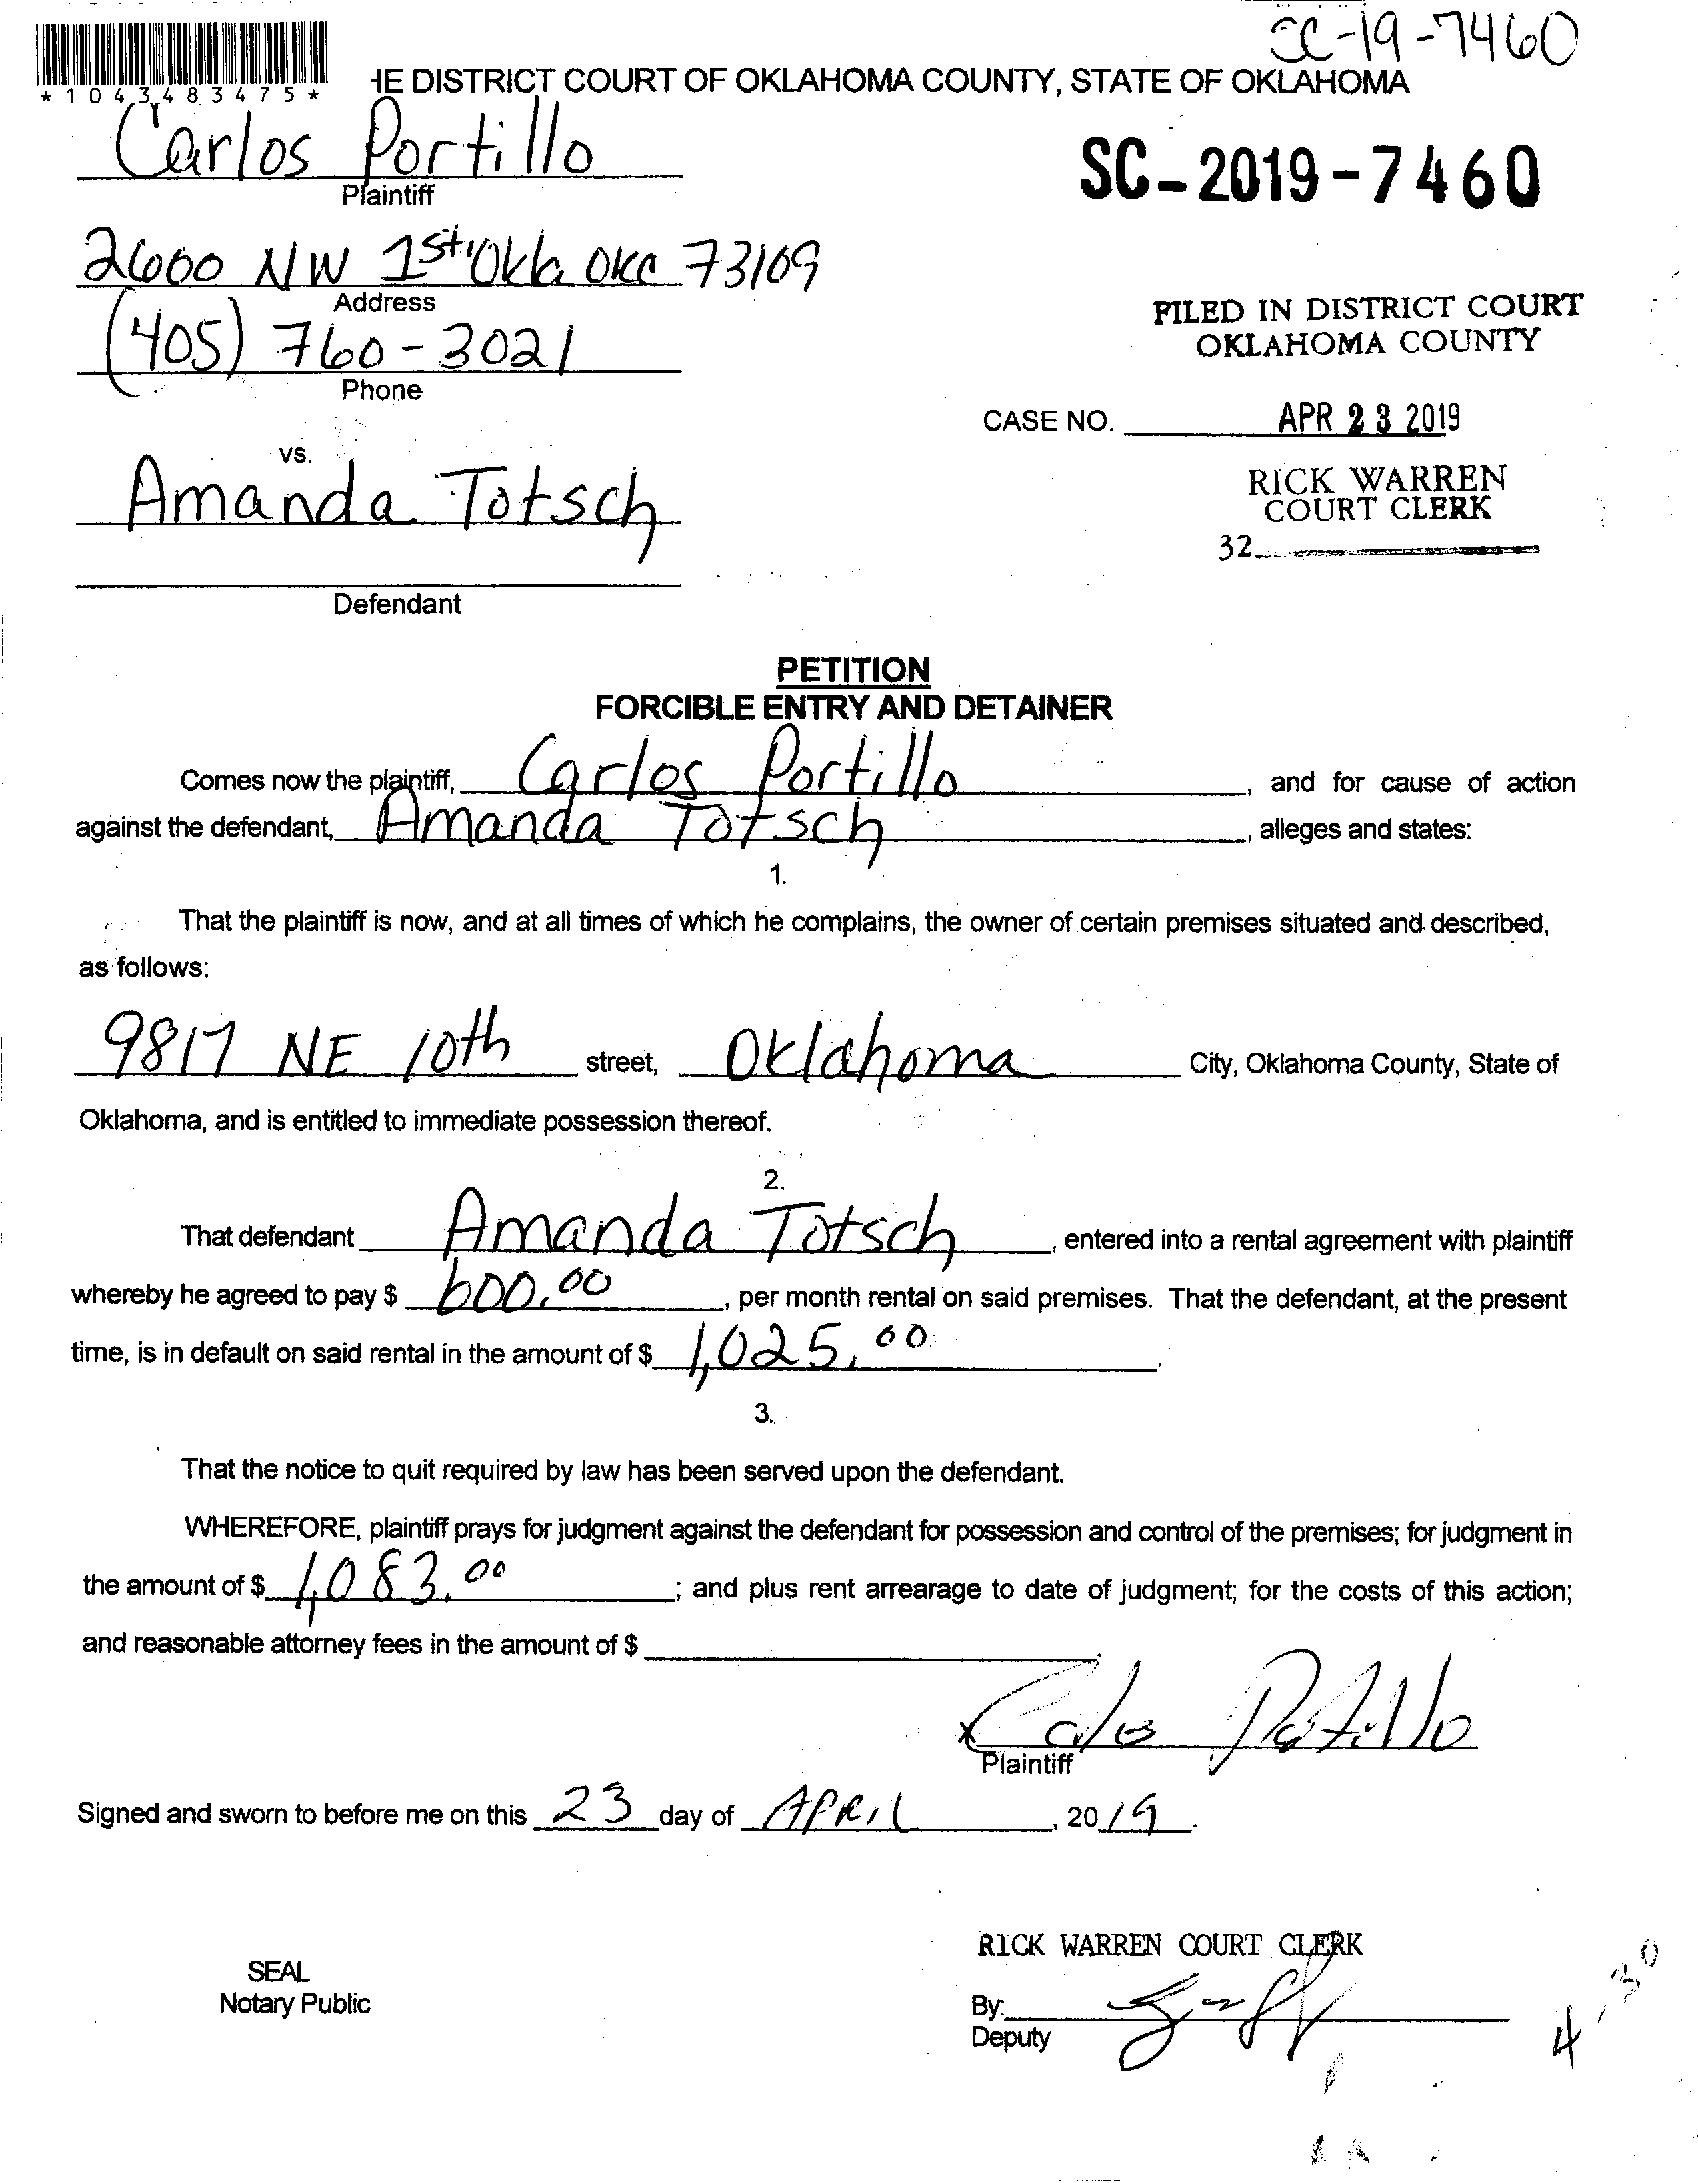 SC-19-7460
* 1 0 4 3 4 8 3 4 7 5 *
HE DISTRICT COURT OF OKLAHOMA COUNTY, STATE OF OKLAHOMA
Carlos Portillo
Plaintiff
SC-2019-7460
2600 NW 1st Okla OKC 73109
Address
FILED IN DISTRICT COURT
OKLAHOMA COUNTY
(405) 760-3021
Phone
CASE NO. APR 23 2019
vs.
RICK WARREN
COURT CLERK
Amanda Totsch
32
Defendant
PETITION
FORCIBLE ENTRY AND DETAINER
Comes now the plaintiff, Carlos Portillo, and for cause of action
against the defendant, Amanda Totsch, alleges and states:
1.
That the plaintiff is now, and at all times of which he complains, the owner of certain premises situated and described,
as follows:
9817 NE 10th street, Oklahoma City, Oklahoma County, State of
Oklahoma, and is entitled to immediate possession thereof.
2.
That defendant Amanda Totsch, entered into a rental agreement with plaintiff
whereby he agreed to pay $ 600.00, per month rental on said premises. That the defendant, at the present
time, is in default on said rental in the amount of $ 1,025.00.
3.
That the notice to quit required by law has been served upon the defendant.
WHEREFORE, plaintiff prays for judgment against the defendant for possession and control of the premises; for judgment in
the amount of $ 1,083.00; and plus rent arrearage to date of judgment; for the costs of this action;
and reasonable attorney fees in the amount of $
x Carlos Portillo
Plaintiff
Signed and sworn to before me on this 23 day of APRIL, 2019.
RICK WARREN COURT CLERK
SEAL
Notary Public
By:
Deputy
4-30